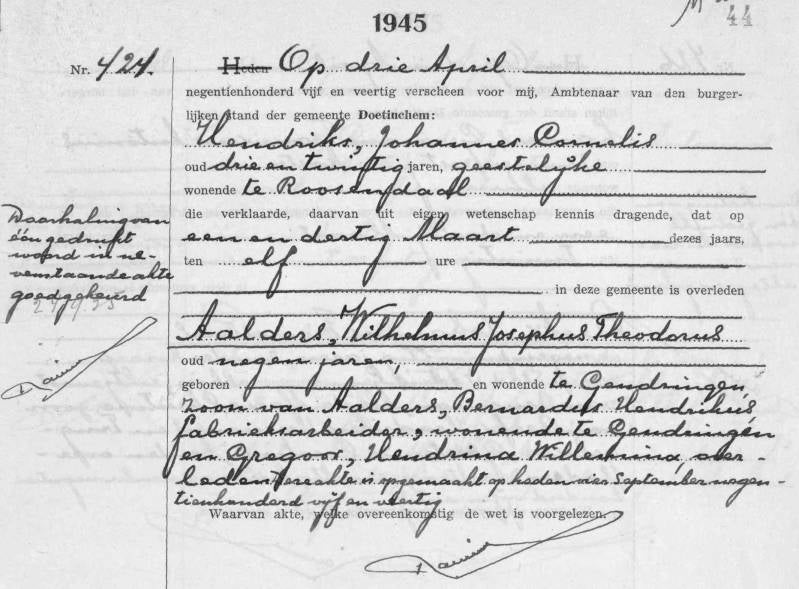 44
1945
Nr. 424. Heden Op drie April
negentienhonderd vijf en veertig verscheen voor mij, Ambtenaar van den burger-
lijken stand der gemeente Doetinchem:
Hendriks, Johannes Cornelis
oud drie en twintig jaren, geestelijke
wonende te Roosendaal
die verklaarde, daarvan uit eigen wetenschap kennis dragende, dat op
een en dertig Maart dezes jaars,
ten elf ure
in deze gemeente is overleden
Aalders, Wilhelmus Josephus Theodorus
oud negen jaren,
geboren en wonende te Gendringen,
zoon van Aalders, Bernardus Hendrikus
fabrieksarbeider, wonende te Gendringen
en Gregoor, Hendrina Willemina, over-
leden. Deze akte is opgemaakt op heden vier September negen-
tienhonderd vijf en veertig
Waarvan akte, welke overeenkomstig de wet is voorgelezen.
Doorhaling van
één gedrukt
woord in ne-
venstaande akte
goedgekeurd